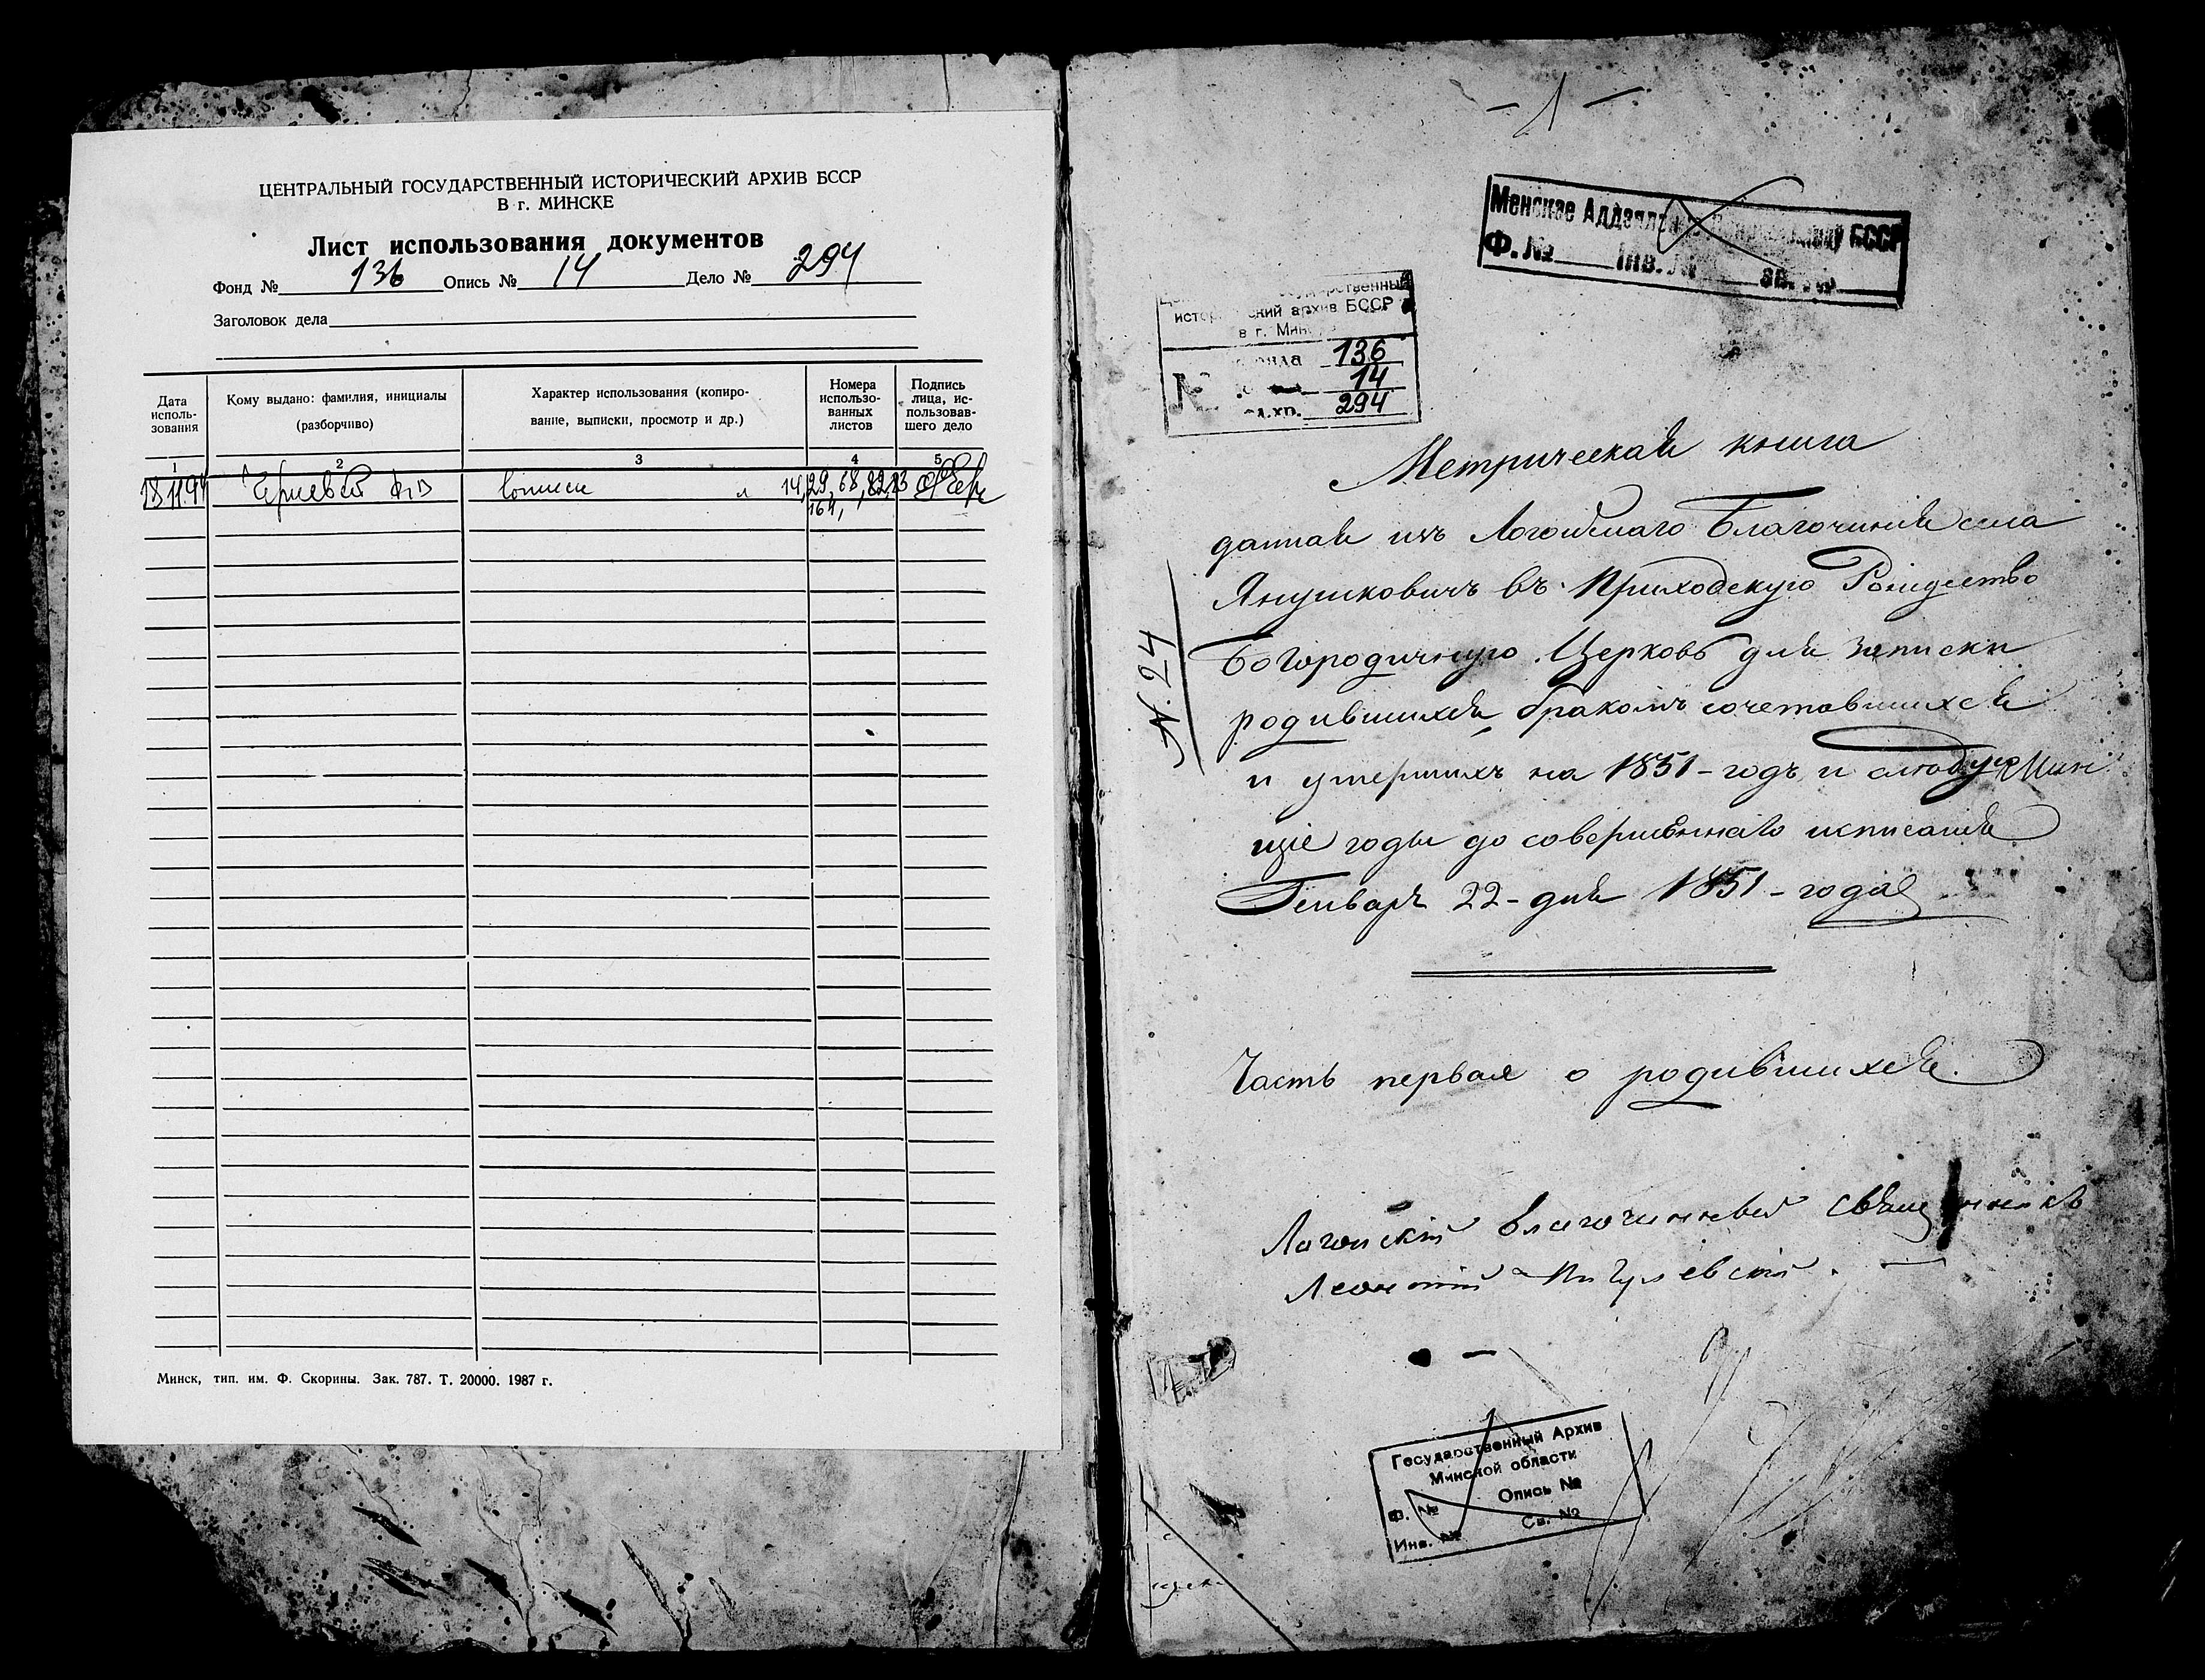 ЦЕНТРАЛЬНЫЙ ГОСУДАРСТВЕННЫЙ ИСТОРИЧЕСКИЙ АРХИВ БССР
В г. МИНСКЕ
Лист использования документов
Фонд № 136 Опись № 14 Дело № 294
Заголовок дела
Дата исполь-зования
Кому выдано: фамилия, инициалы (разборчиво)
Характер использования (копиро-вание, выписки, просмотр и др.)
Номера использо-ванных листов
Подпись лица, ис-пользовав-шего дело
1 2 3 4 5
14, 29, 68, 82,
164,
Минск, тип. им. Ф. Скорины. Зак. 787. Т. 20000. 1987 г.
- 1 -
Менскае Аддзяле БССР
Ф. № Інв. №
исторический архив БССР
в г. Минске
фонда 136
№ 14
ед.хр. 294
N. 24
Метрическая книга
данная изъ Логойскаго Благочинія села
Янушковичъ въ Приходскую Рождество
Богородичную Церковь для записки
родившихся, бракомъ сочетавшихся
и умершихъ на 1851-годъ и слюдую
щіе годы до совершеннаго исписанія
Генваря 22-дня 1851-года
Часть первая о родившихся.
Логойскій благочинный священникъ
Леонтій
Государственный Архив
Минской области
Ф. № Опись №
Инв. № Св. №